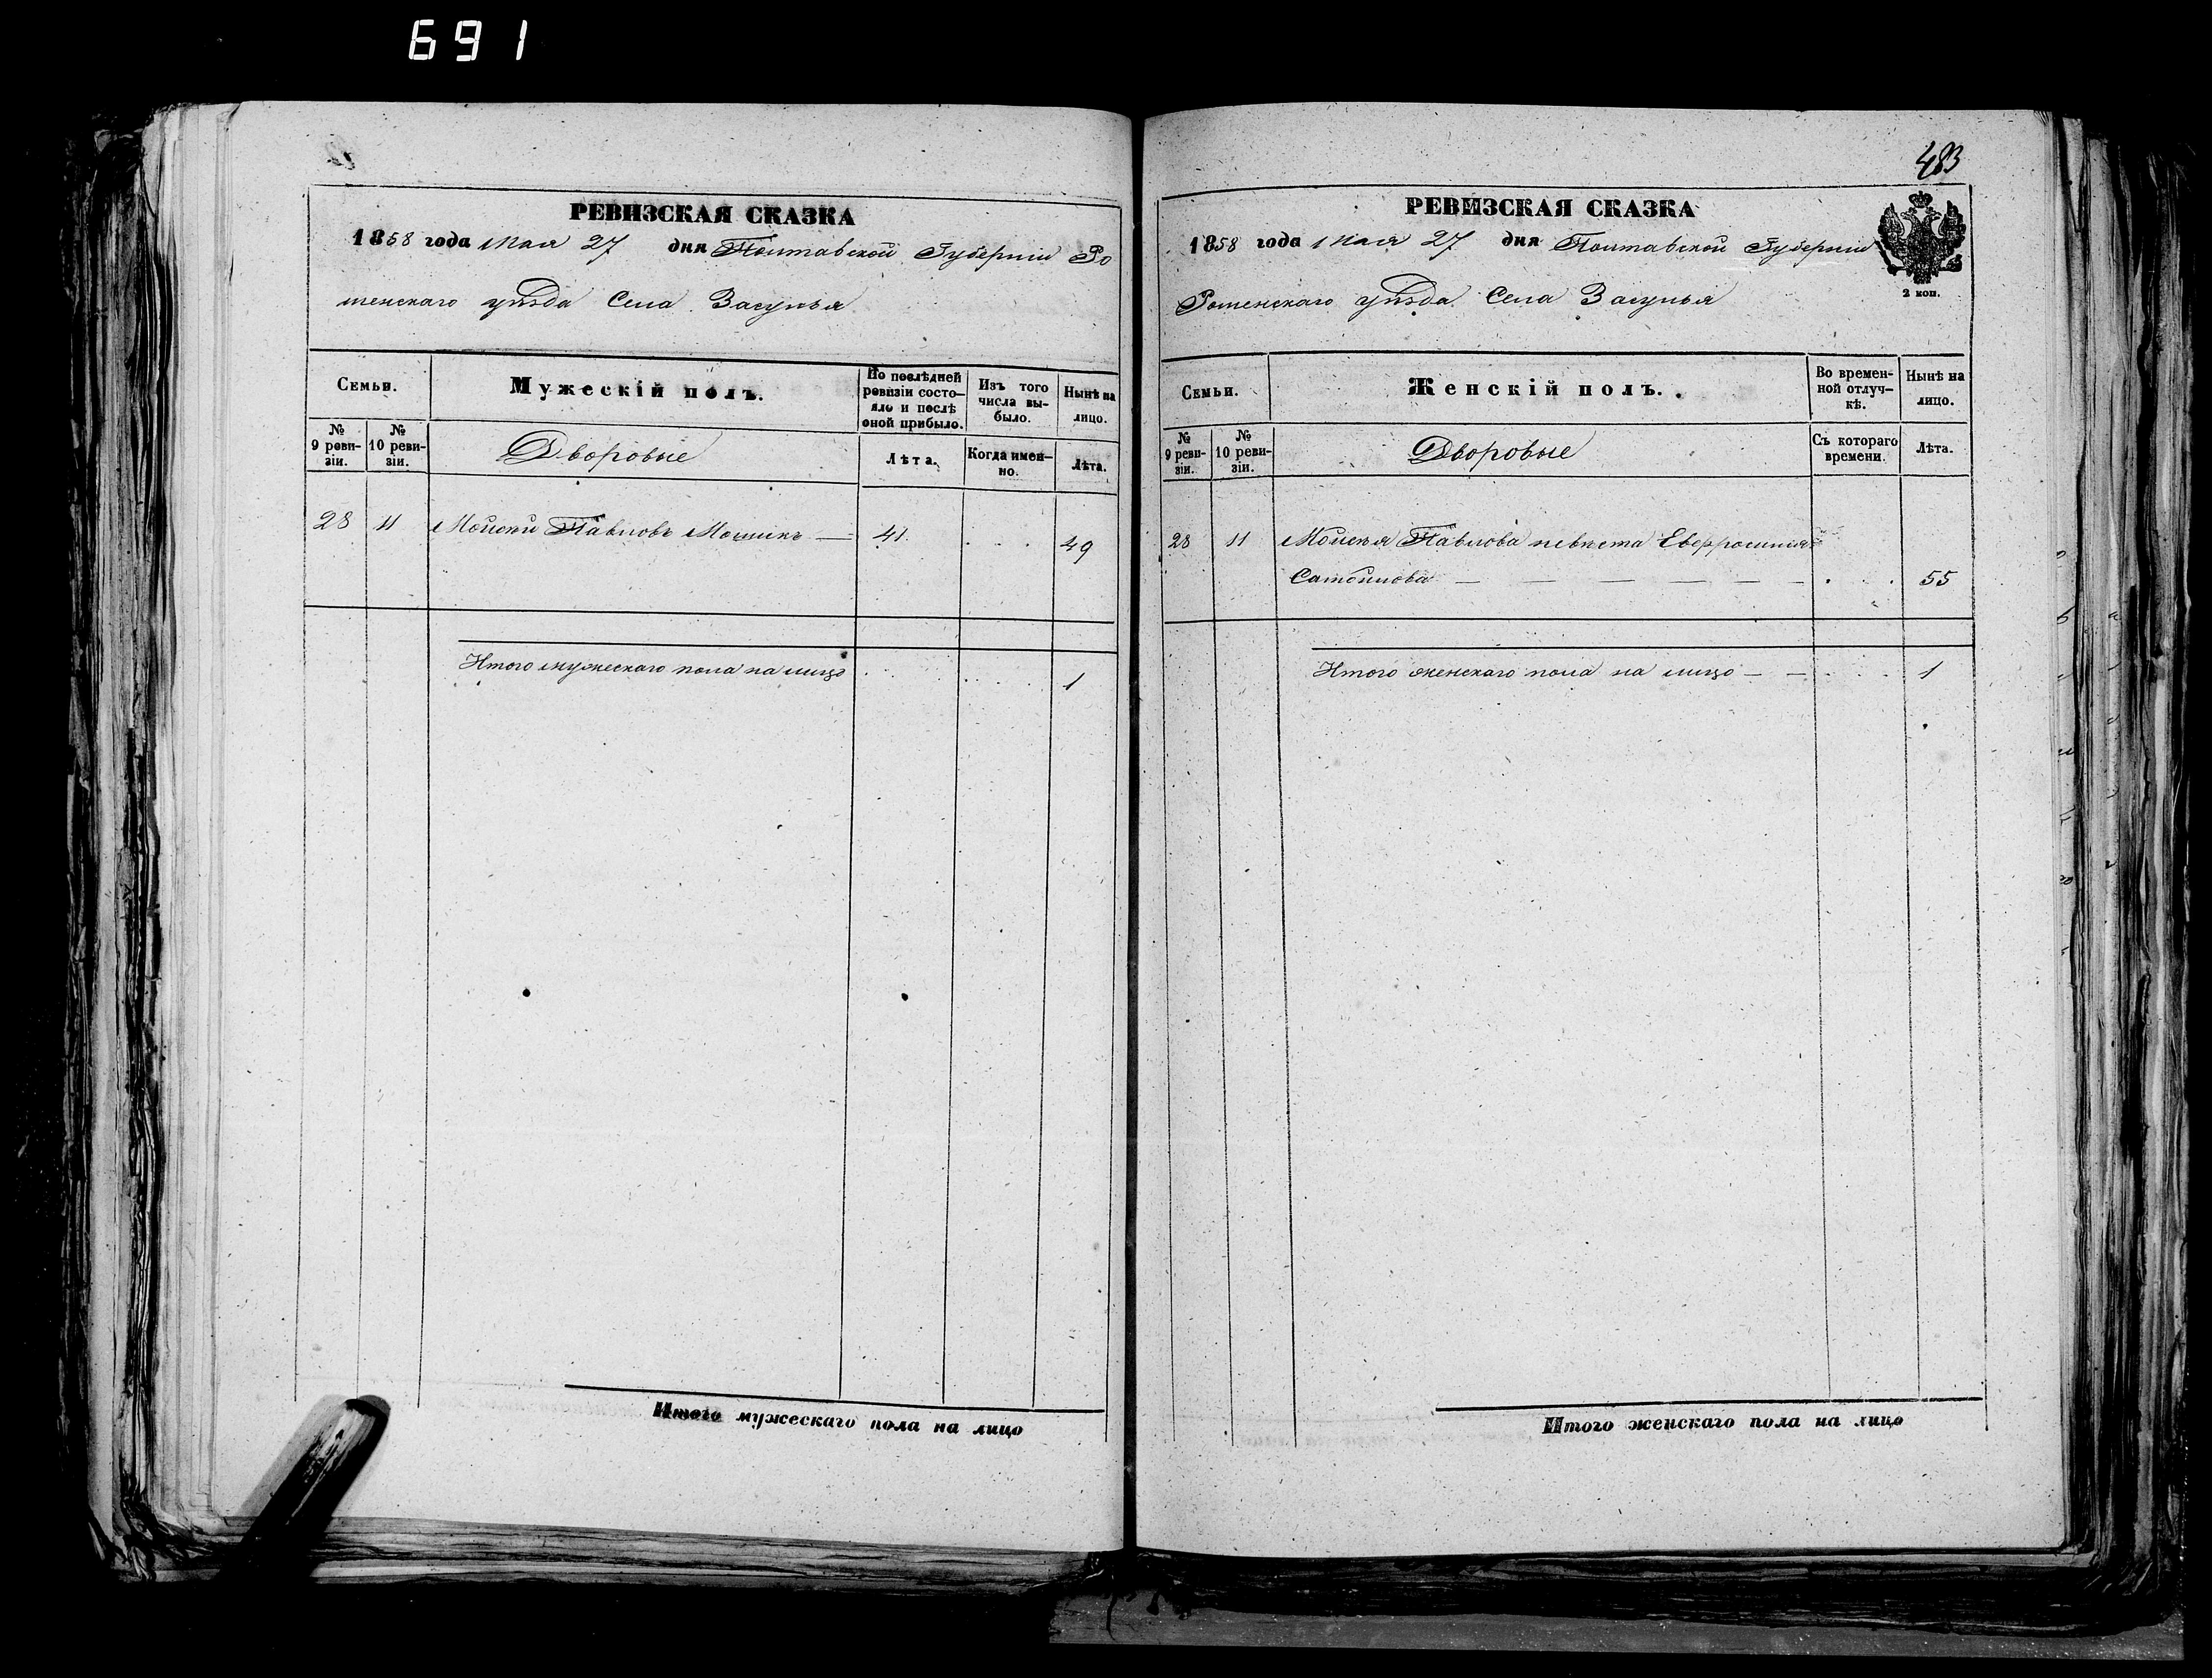 691
РЕВИЗСКАЯ СКАЗКА
1858 года Мая 27 дня Полтавской Губерніи Ро
менскаго уѣзда Села Засулья
Семьи.
Мужескій полъ.
По послѣдней ревизіи состояло и послѣ оной прибыло.
Изъ того числа выбыло.
Нынѣ на лицо.
№ 9 ревизіи.
№ 10 ревизіи.
Дворовые
Лѣта.
Когда именно.
Лѣта.
28 11 Мойсей Павловъ — 41 . . . 49
Итого мужескаго пола на лицо . . . . . . 1
Итого мужескаго пола на лицо
483
РЕВИЗСКАЯ СКАЗКА
1858 года Мая 27 дня Полтавской Губерніи
Роменскаго уѣзда Села Засулья
2 коп.
Семьи.
Женскій полъ.
Во временной отлучкѣ.
Нынѣ на лицо.
№ 9 ревизіи.
№ 10 ревизіи.
Дворовые
Съ котораго времени.
Лѣта.
28 11 Мойсея Павлова невѣста Евфросинія
— — — — — — . . . 55
Итого женскаго пола на лицо — — . . . 1
Итого женскаго пола на лицо